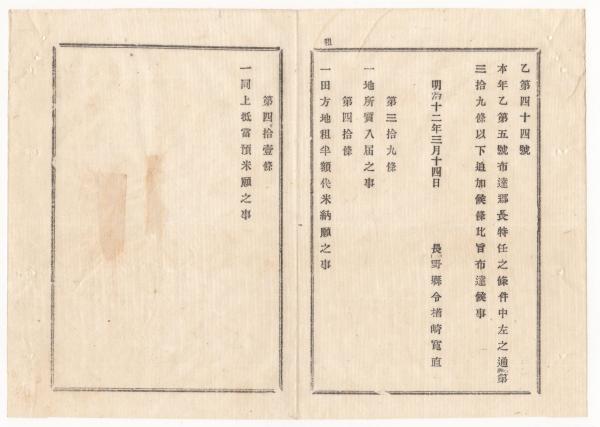 租
乙第四十四號
本年乙第五號布達郡長特任之條件中左之通第
三拾九條以下追加候條此旨布達候事
明治十二年三月十四日　長野縣令楢崎寬直
第三拾九條
一地所質入届之事
第四拾條
一田方地租半額代米納願之事
第四拾壹條
一同上抵當預米願之事